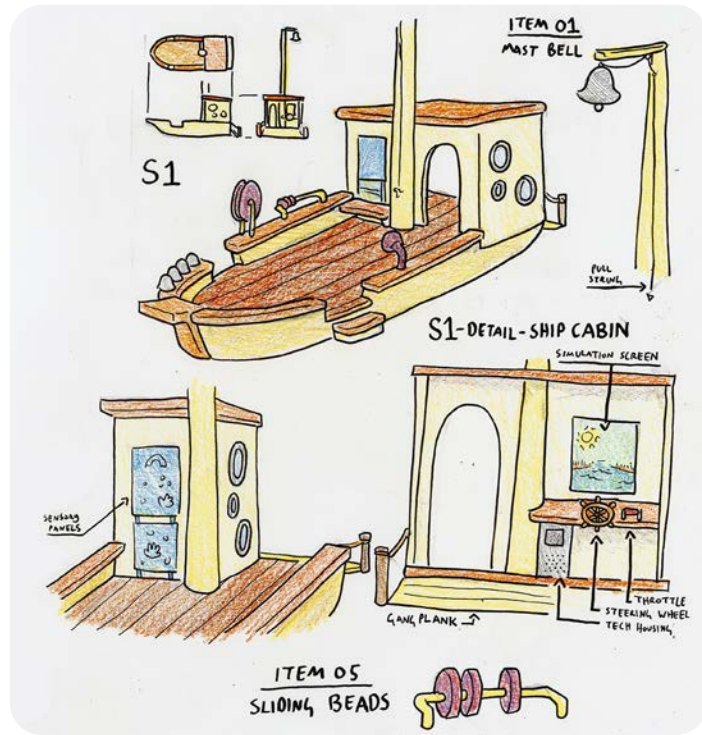 ITEM 01
MAST BELL
S1
PULL
STRING
S1-DETAIL-SHIP CABIN
SIMULATION SCREEN
SENSORY
PANELS
THROTTLE
STEERING WHEEL
TECH HOUSING
GANG PLANK
ITEM 05
SLIDING BEADS